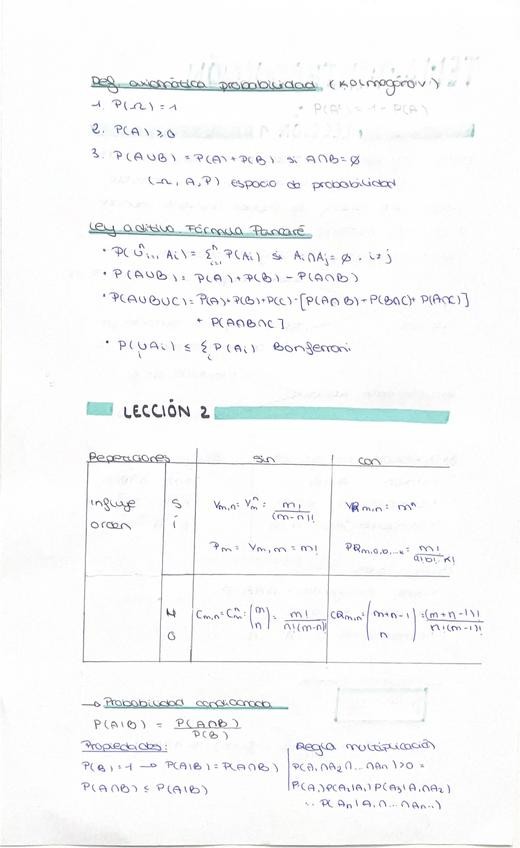 Def axiomática probabilidad (Kolmogórov)
1. P(Ω) = 1
2. P(A) ≥ 0
3. P(A∪B) = P(A) + P(B) si A∩B = ∅
(Ω, A, P) espacio de probabilidad
Ley aditiva. Fórmula Poncaré
• P(∪ⁿᵢ₌₁ Aᵢ) = Σⁿᵢ₌₁ P(Aᵢ) si Aᵢ∩Aⱼ = ∅ . i≠j
• P(A∪B) = P(A) + P(B) - P(A∩B)
• P(A∪B∪C) = P(A) + P(B) + P(C) - [P(A∩B) - P(B∩C) + P(A∩C)]
+ P(A∩B∩C]
• P(∪Aᵢ) ≤ Σ P(Aᵢ) Bonferroni
LECCIÓN 2
Repeticiones sin con
Influye orden SÍ Vm,n = Vⁿₘ = m!/(m-n)! VRm,n = mⁿ
Pm = Vm,m = m! PRm,a,b,...k = m!/a!b!..k!
NO Cm,n = Cⁿₘ = (m n) = m!/n!(m-n)! CRm,n = (m+n-1 n) = (m+n-1)!/n!(m-1)!
→ Probabilidad condicionada
P(A|B) = P(A∩B)/P(B)
Propiedades:
P(B) = 1 → P(A|B) = P(A∩B)
P(A∩B) ≤ P(A|B)
Regla multiplicación
P(A₁∩A₂∩...∩An) > 0 =
P(A₁)P(A₂|A₁)P(A₃|A₁∩A₂)
... P(An|A₁∩...∩An-1)